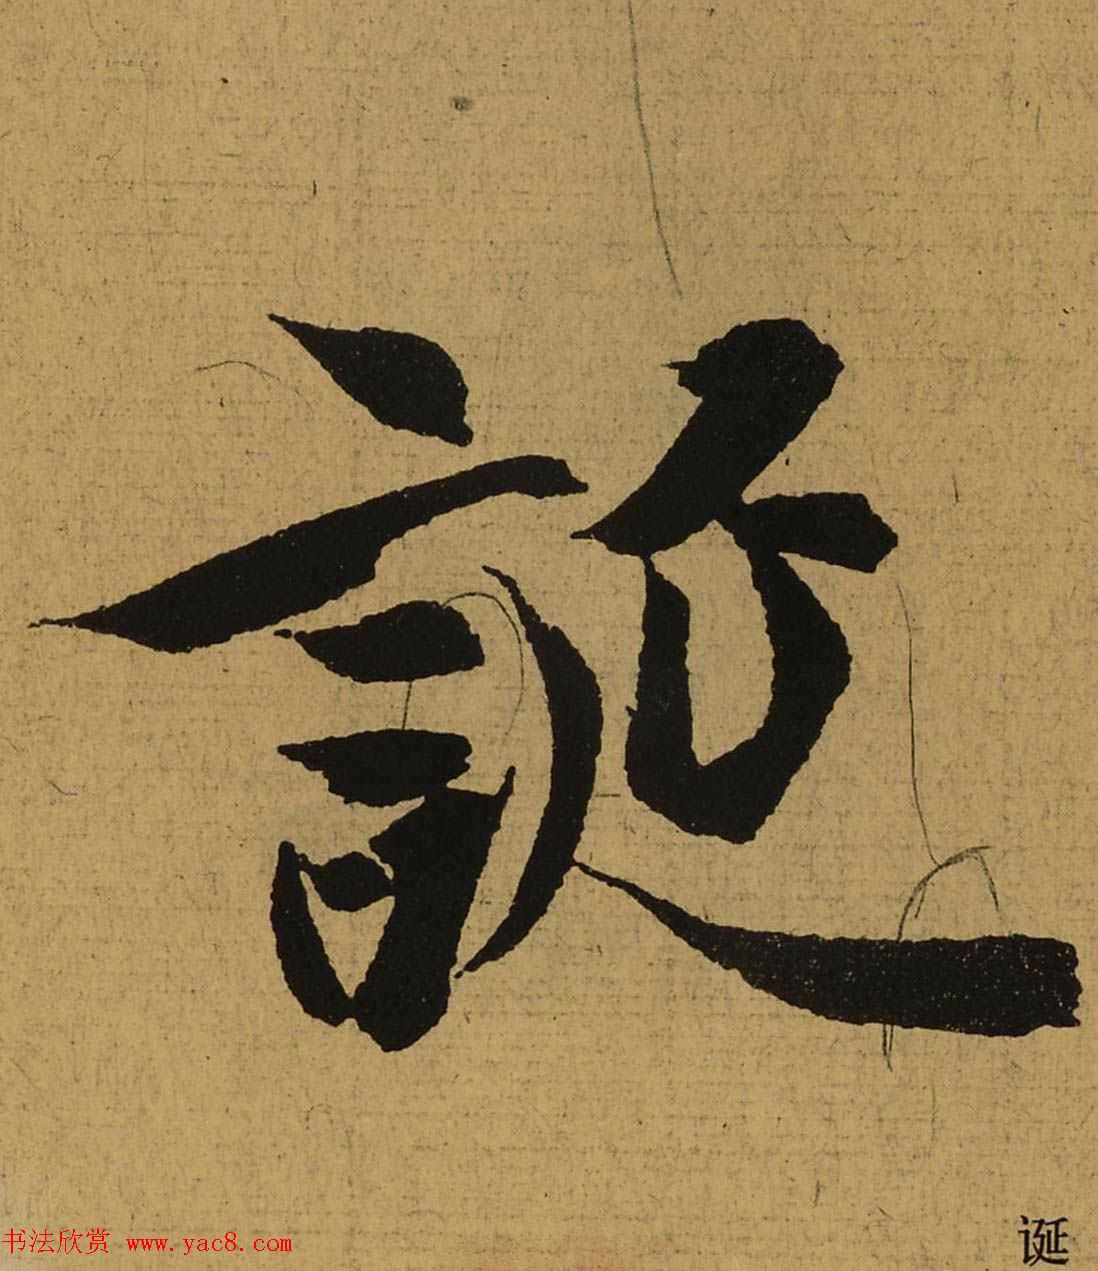 誕
书法欣赏 www.yac8.com
诞